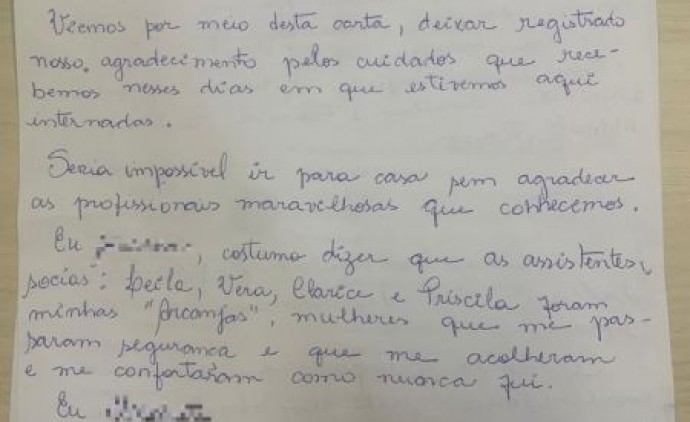 Viemos por meio desta carta, deixar registrado
nosso agradecimento pelos cuidados que rece-
bemos nesses dias em que estivemos aqui
internadas.
Seria impossível ir para casa sem agradecer
as profissionais maravilhosas que conhecemos.
Eu , costumo dizer que as assistentes
socias: Leila, Vera, Clarice e Priscila foram
minhas "Arcanjas", mulheres que me pas-
saram seguranca e que me acolheram
e me confortaram como nunca fui.
Eu